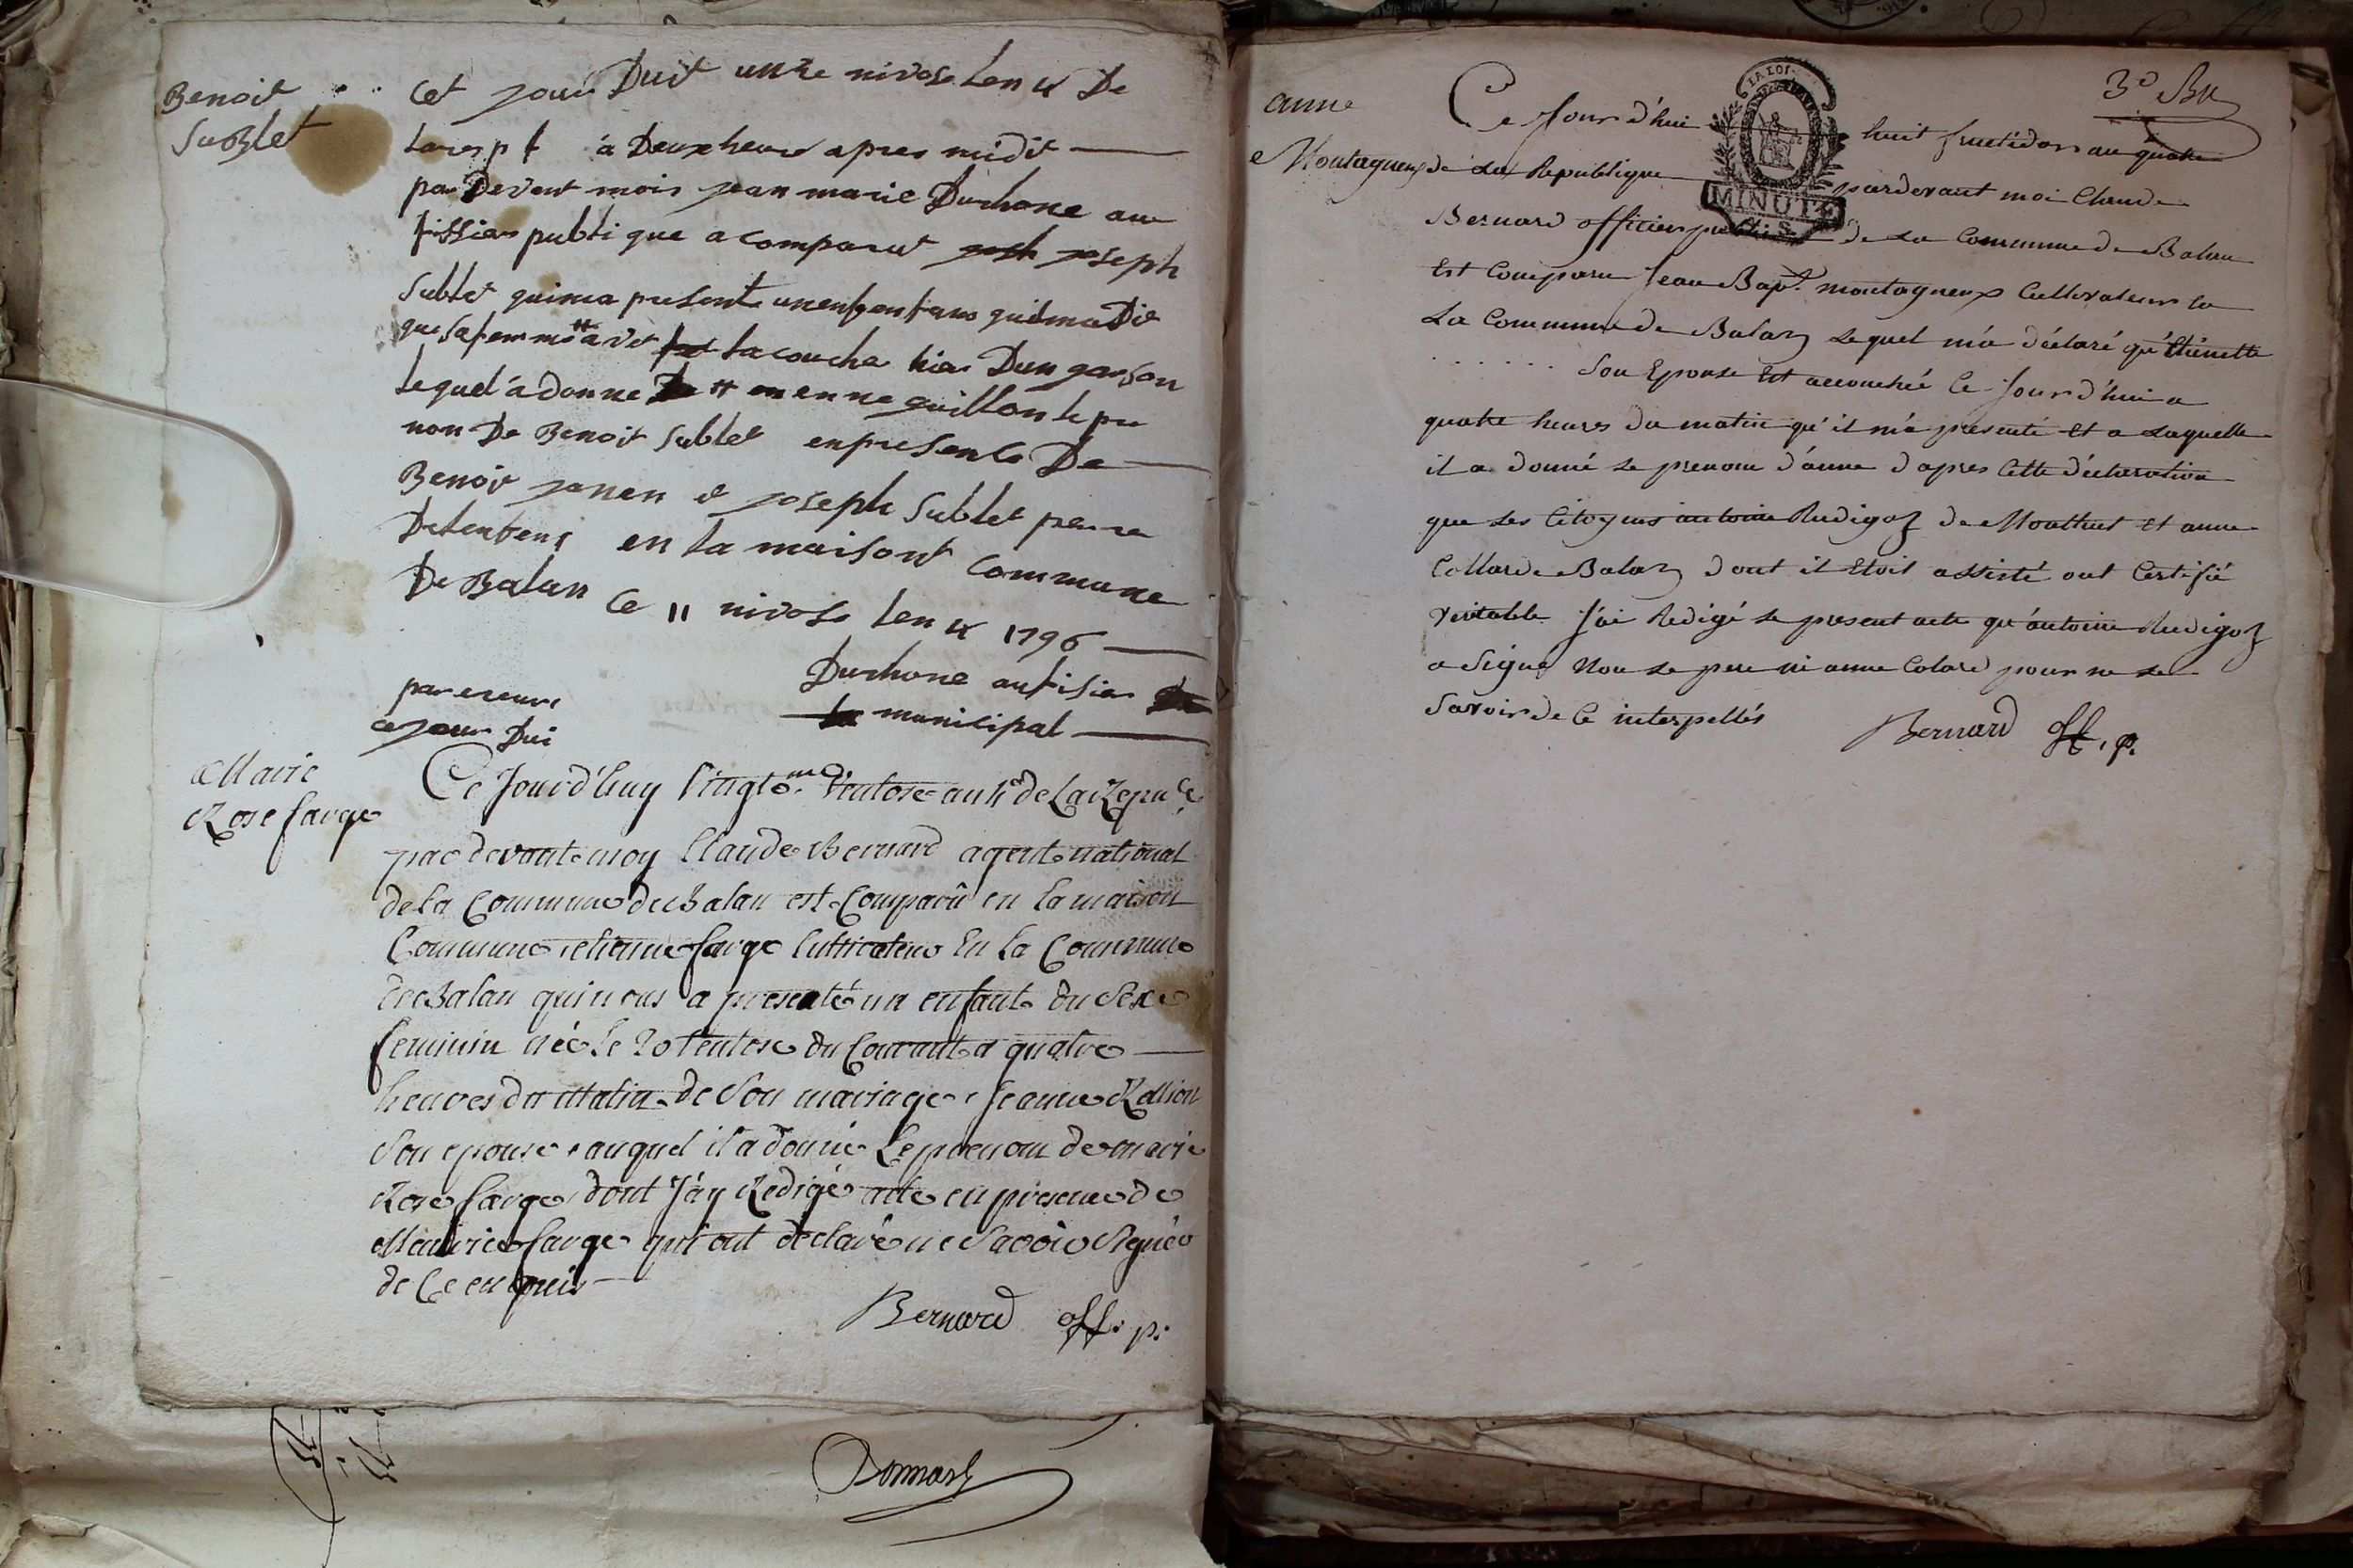 Benoit
Sublet
Cet jour Duit unze nivose Len 4 De
larep f à Deux heure apres midit
par Devent mois jean marie Duchone au
fissier publique a comparut joseph
Sublet quima presente un enfent
que sa femme avet lacouche hier Dun garson
lequel a donne le pre
non De Benoit Sublet en presence De
Benoit janen et joseph Sublet peure
De lenfent en la maisont commune
De Balan Ce 11 nivose Len 4 1796
Duchone aufisier
municipal
par ereure
ce jour Dui
Marie
Rose farge
Ce Jourd'huy Vingt Ventose an 4e de La Repu ce
pardevant moy Claude Bernard agent national
de la Commune de Balan est Comparû en la maison
Commune etienne farge Cultivateur En la Commune
de Balan qui nous a presenté un enfant du Sexe
feminin née le 20 Ventose du Courant a quatre
heures du Matin de Son mariage, Jeanne
Son epouse, auquel il a donné Le prenom de marie
Rose farge dont J'ay Redigé acte en presence de
farge qui ont declaré ne Savoir Signér
de Ce enquis
Bernard off. p.
3e
anne
Montagneux
LA LOI
MINUTE
Ce Jourd'hui huit fructidor an quatre
de La Republique pardevant moi Claude
Bernard officier public de La Commune de Balan
Est Comparu Jean Bapt. montagneux Cultivateur
La Commune de Balan Lequel m'a déclaré qu'Etiennette
. . . . . . Son Epouse Est accouchée Ce Jourd'hui a
quatre heures du matin qu'il m'a presenté Et a Laquelle
il a donné Le prenom d'anne d'apres Cette déclaration
que Les Citoyens antoine Rudigoz de Montluel Et anne
Collard de Balan dont il Etoit assisté ont Certifié
veritable J'ai Redigé Le present acte qu'antoine Rudigoz
a Signé Non Le pere ni anne Colard pour ne Le
Savoir de Ce interpellés
Bernard off. p.